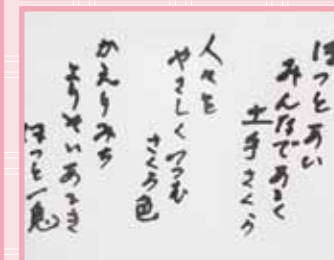 ほっとあい
みんなであるく
土手さくら
人々を
やさしくつつむ
さくら色
かえりみち
よりそいあるき
ほっと一息